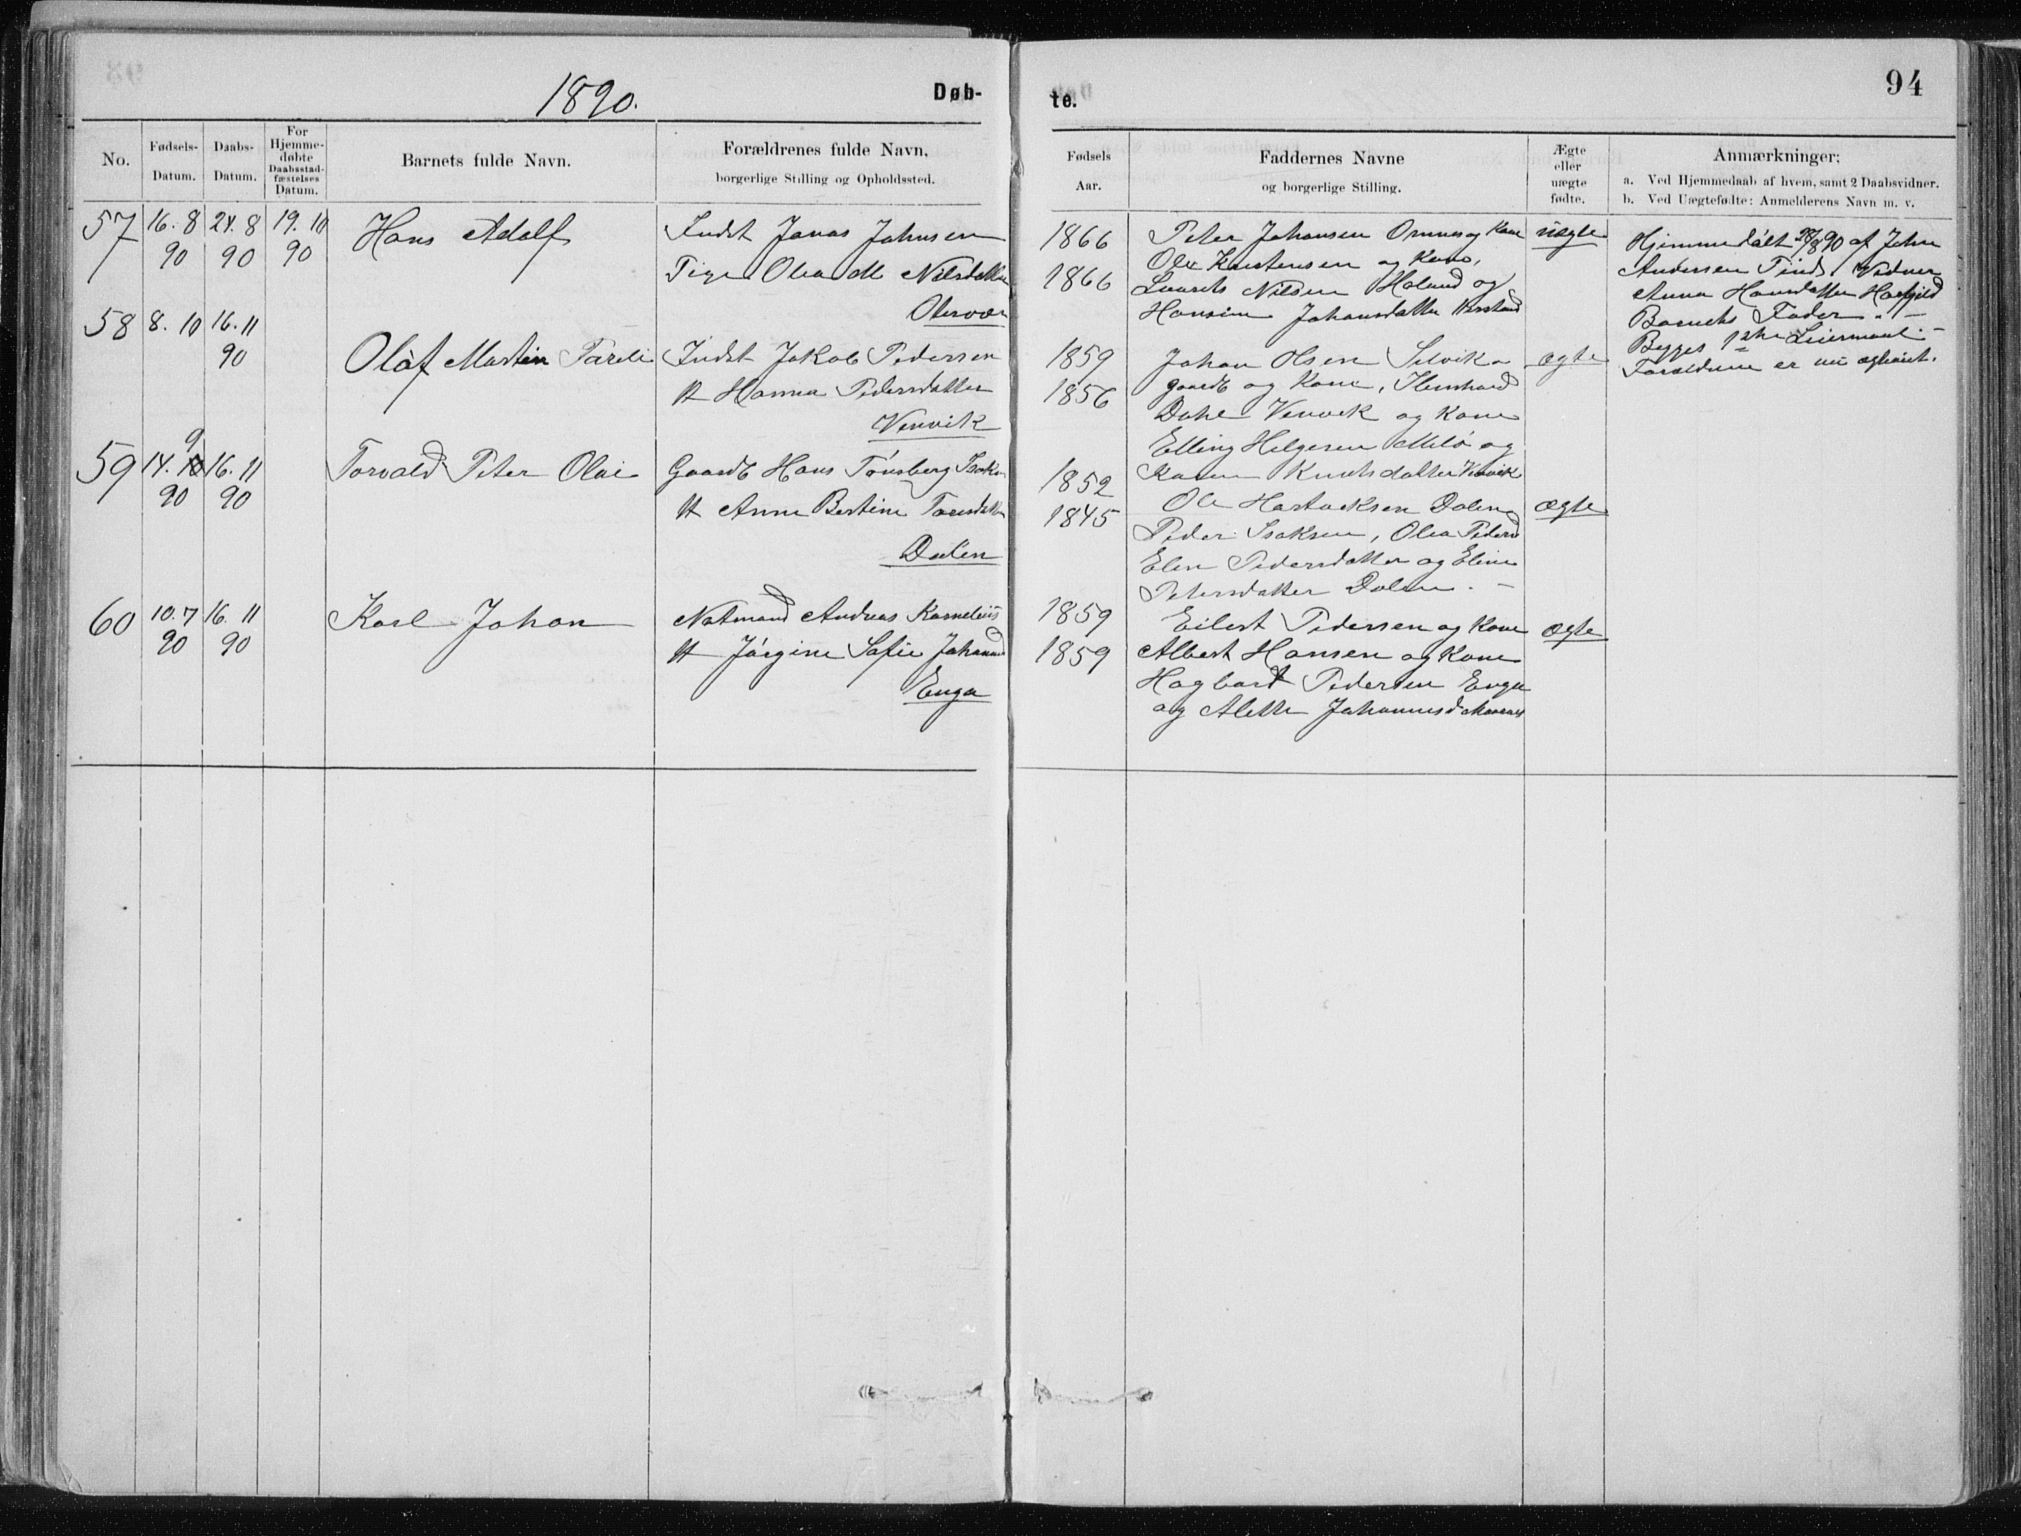 1890.
Døb-
No.
Fødsels-
Datum.
Daabs-
Datum.
For
Hjemme-
døbte
Daabsstad-
fæstelses
Datum.
Barnets fulde Navn.
Forældrenes fulde Navn,
borgerlige Stilling og Opholdssted.
57 16. 8 24. 8 19. 10 Hans Adolf Indst Jonas Johnsen
90 90 90 Pige Olea M Nilsdatter
58 8. 10 16. 11
90 Olaf Martin Indst Jakob Pedersen
Hanna Pedersdatter
Venvik
9
59 14. 10 16. 11 Torvald Peter Olai Gaardb Hans Tønsberg
90 90 Anne Bertine
Dalen
60 10. 7 16. 11 Karl Johan Andreas
90 90 Jørgine Sofie
Enga
te.
94
Fødsels
Aar.
Faddernes Navne
og borgerlige Stilling.
Ægte
eller
uægte
fødte.
Anmærkninger:
a. Ved Hjemmedaab af hvem, samt 2 Daabsvidner.
b. Ved Uægtefødte: Anmelderens Navn m. v.
1866 Peter Johansen og Kone uægte
Ole Kristensen og Kone,
1866 Nilsen og
Johansdatter
Hjemmedøbt af John
Andersen
Anna Hansdatter
Barnets Fader. —
Begges Leiermaal. —
Forældrene er nu
1859 Johan Olsen Selvik ægte
gaardb og Kone,
1856
Venvik og Kone
Elling Helgesen og
1852 Karen Knudsdatter
1845 Ole Dalen ægte
Peder Isaksen, Olea
Elen Pedersdatter og
Petersdatter Dalen. —
1859 Eilert Pedersen og Kone ægte
1859 Albert Hansen og Kone
Hagbart Pedersen Enga
og Alette